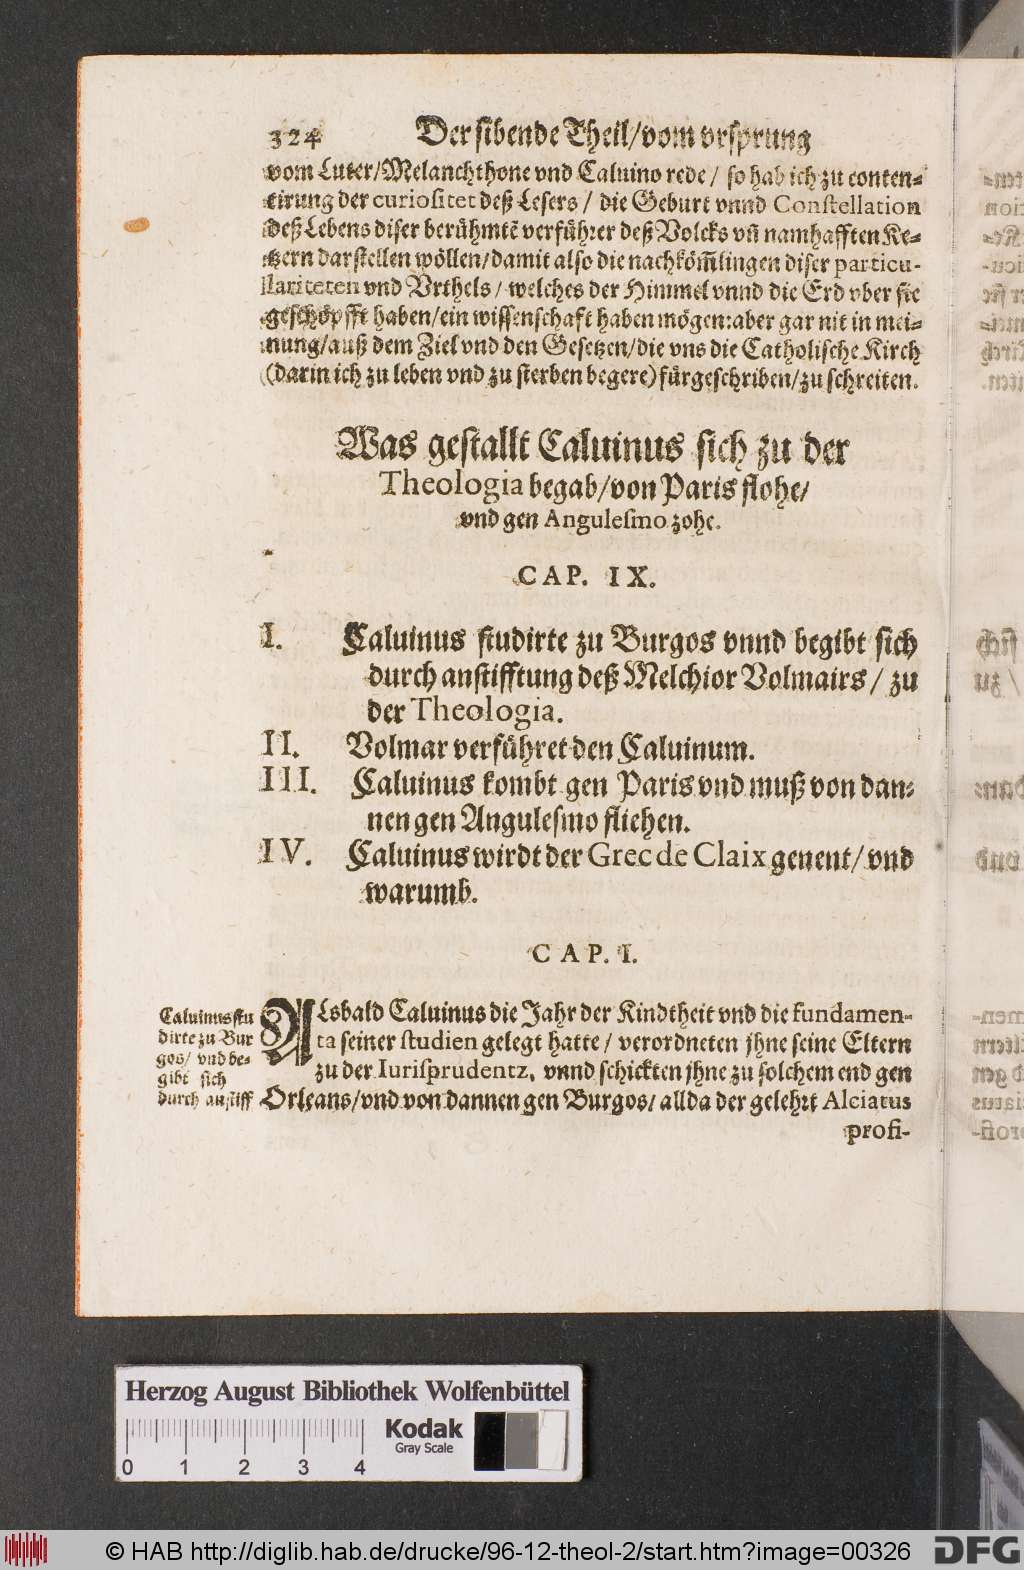 324 Der sibende Theil/vom vrsprung
vom Luter/Melanchthone vnd Caluino rede/ so hab ich zu conten-
tirung der curiositet deß Lesers/ die Geburt vnnd Constellation
deß Lebens diser berühmtē verführer deß Volcks vn̄ namhafften Ke-
tzern darstellen wöllen/damit also die nachköm̄lingen diser particu-
lariteten vnd Vrthels/ welches der Himmel vnnd die Erd vber sie
geschöpfft haben/ein wissenschaft haben mögen: aber gar nit in mei-
nung/auß dem Ziel vnd den Gesetzen/die vns die Catholische Kirch
(darin ich zu leben vnd zu sterben begere) fürgeschriben/zu schreiten.
Was gestallt Caluinus sich zu der
Theologia begab/von Paris flohe/
vnd gen Angulesmo zohe.
CAP. IX.
I. Caluinus studirte zu Burgos vnnd begibt sich
durch anstifftung deß Melchior Volmairs/ zu
der Theologia.
II. Volmar verführet den Caluinum.
III. Caluinus kombt gen Paris vnd muß von dan-
nen gen Angulesmo fliehen.
IV. Caluinus wirdt der Grec de Claix genent/ vnd
warumb.
CAP. I.
Caluinus stu
dirte zu Bur
gos/ vnd be-
gibt sich
durch anstiff
Alsbald Caluinus die Jahr der Kindtheit vnd die fundamen-
ta seiner studien gelegt hatte/ verordneten jhne seine Eltern
zu der Iurisprudentz, vnnd schickten jhne zu solchem end gen
Orleans/vnd von dannen gen Burgos/ allda der gelehrt Alciatus
profi-
Herzog August Bibliothek Wolfenbüttel
Kodak
Gray Scale
0 1 2 3 4
© HAB http://diglib.hab.de/drucke/96-12-theol-2/start.htm?image=00326
DFG